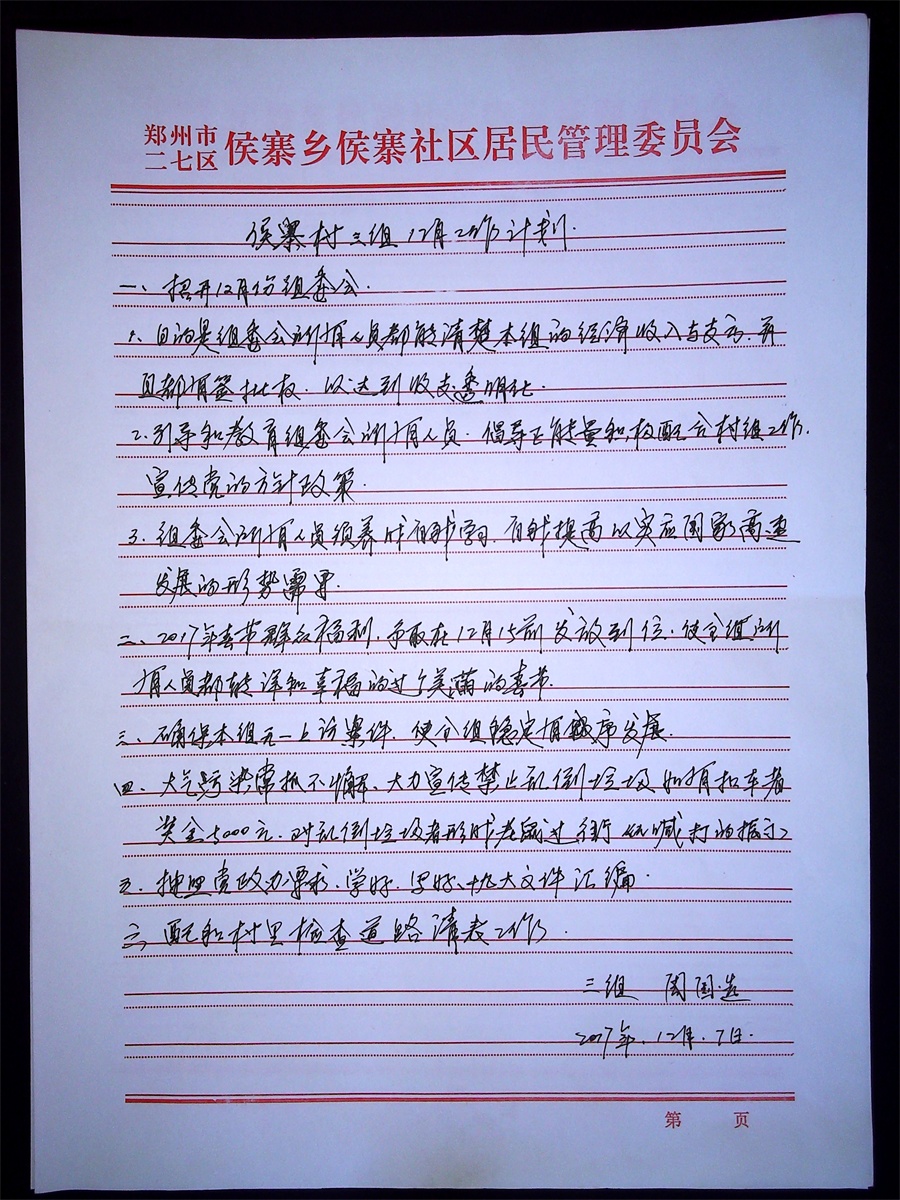 郑州市
二七区 侯寨乡侯寨社区居民管理委员会
侯寨村三组12月工作计划.
一、招开12月份组委会.
1、目的是组委会所有人员都能清楚本组的经济收入与支出、并
且都有签批权.以达到收支透明化.
2、引导和教育组委会所有人员.倡导正能量积极配合村组工作.
宣传党的方针政策.
3、组委会所有人员须养成自我学习.自我提高以实应国家高速
发展的形势需要.
二、2017年春节群众福利,争取在12月15前发放到位,使全组所
有人员都能详和幸福的过个美满的春节.
三、确保本组无一上访案件.使全组稳定有秩序发展.
四、大气污染常抓不懈、大力宣传禁止乱倒垃圾如有扣车者
奖金5000元.对乱倒垃圾者形成老鼠过街 喊打的
五、按照党政办要求.学好.写好、十九大文件汇编.
六、配和村里检查道路清表工作.
三组 周国
2017年.12月.7日.
第 页